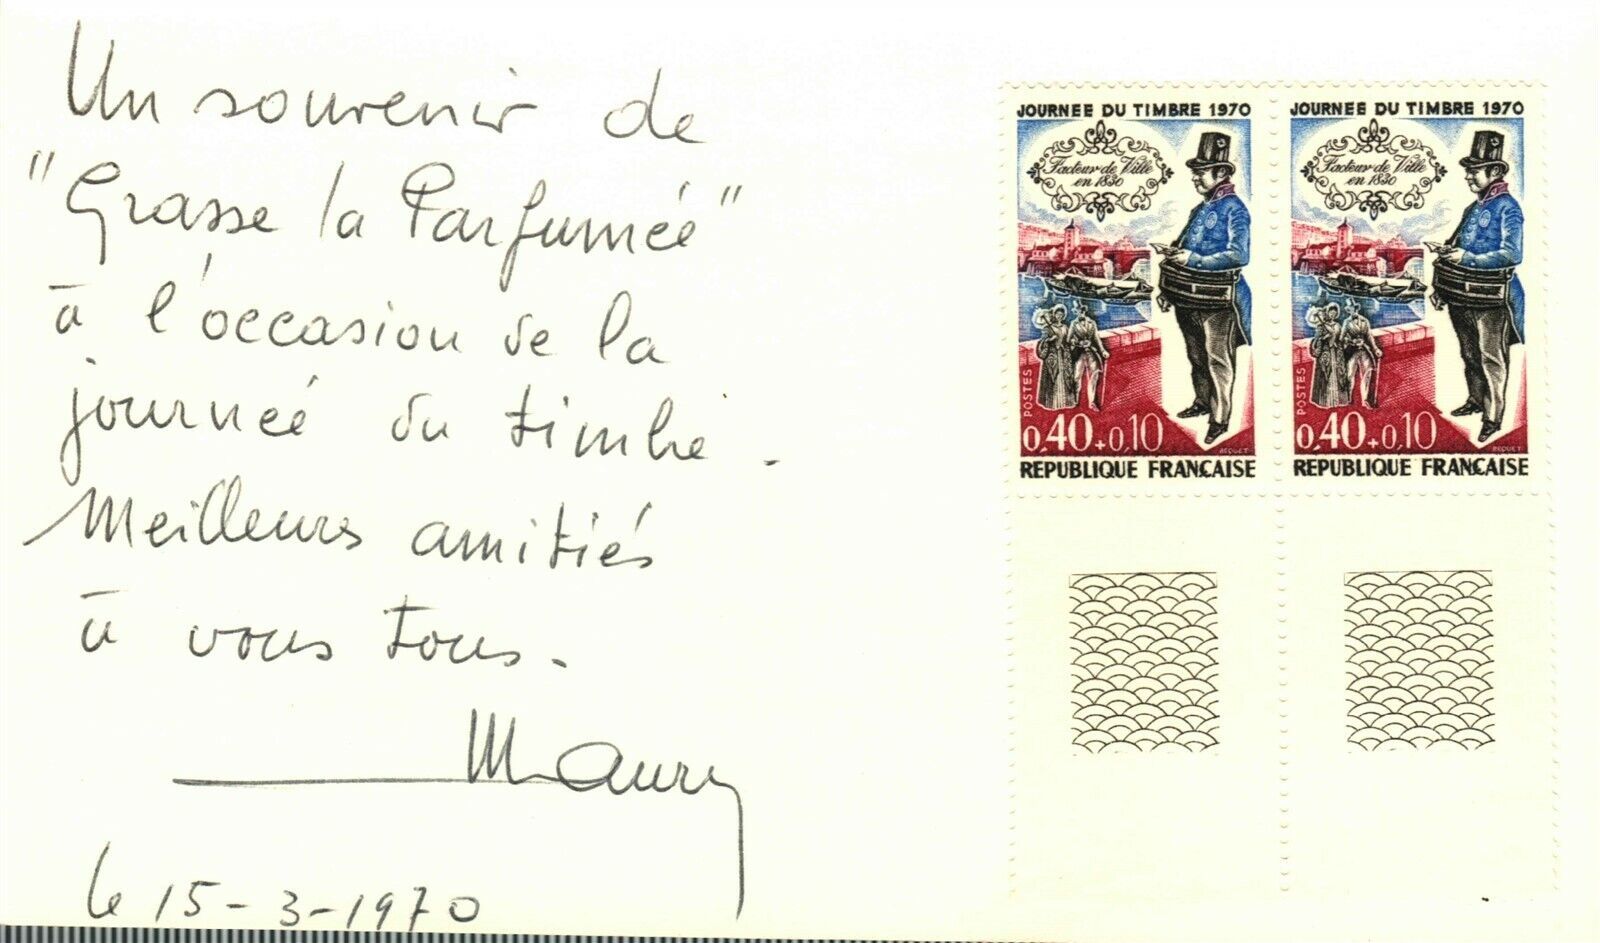 Un souvenir de
"Grasse la Parfumée"
à l'occasion de la
journée du timbre.
Meilleurs amitiés
à vous tous.
Maury
le 15-3-1970
JOURNEE DU TIMBRE 1970
Facteur de Ville
en 1830
POSTES
0,40+0,10
DECUET
REPUBLIQUE FRANÇAISE
JOURNEE DU TIMBRE 1970
Facteur de Ville
en 1830
POSTES
0,40+0,10
BEQUET
REPUBLIQUE FRANÇAISE